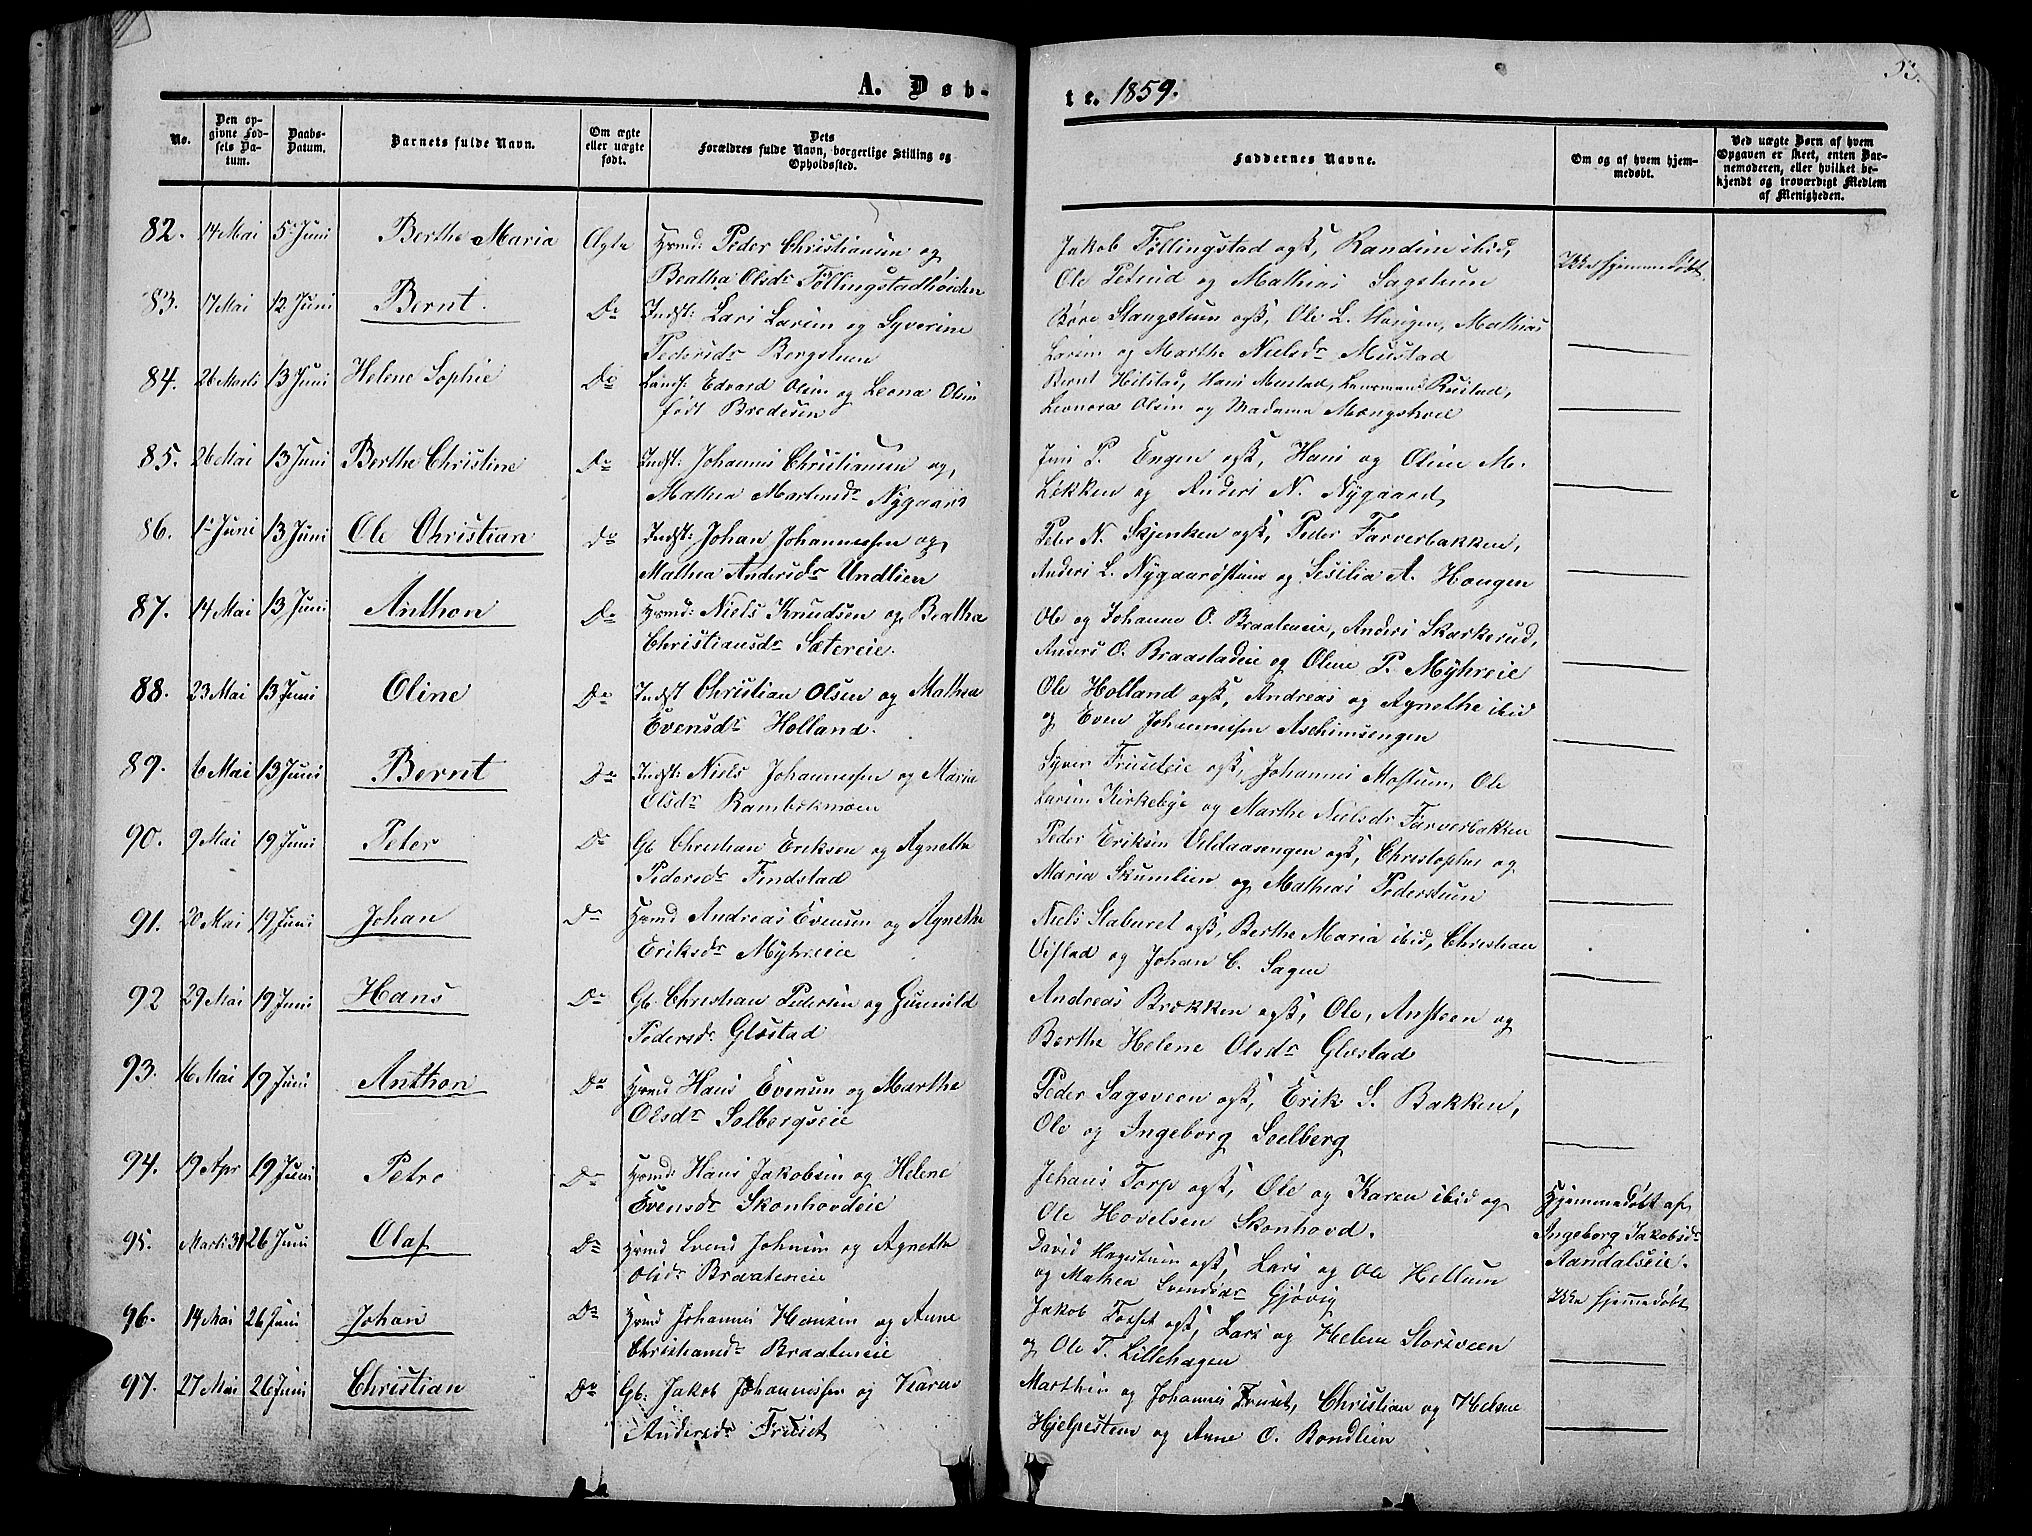 A. Døb-
te. 1859.
No.
Den opgivne Fødsels Datum.
Daabs-Datum.
Barnets fulde Navn.
Om ægte eller uægte født.
Dets Forældres fulde Navn, borgerlige Stilling og Opholdssted.
Faddernes Navne.
Om og af hvem hjemmedøbt.
Ved uægte Børn af hvem Opgaven er skeet, enten Barnemoderen, eller hvilket bekjendt og troværdigt Medlem af Menigheden.
82. 14 Mai 5 Juni Berthe Maria Ægte Hrmd: Peder Christiansen og
Beatha Olsdr Føllingstadhøiden
Jakob Føllingstad ogsk, Randine ibid,
Ole Petrud og Mathias Sagstuen
Ikke hjemmedøbt
83. 17 Mai 12 Juni Bernt. Do Indst: Lars Larsen og Syverine
Pedersdr Bergstuen
Børe Stangstuen ogsk, Ole L. Haugen, Mathias
Larsen og Marthe Nielsdr Mustad
84. 26 Marts 13 Juni Helene Sophie Do Landh. Edvard Olsen og Leona Olsen
født Bredesen
Bernt Hilstad, Hans Mustad, Lensmand Rustad,
Leonora Olsen og Madame Mængshoel
85. 26 Mai 13 Juni Berthe Christine Do Indst: Johannes Christiansen og
Mathea Martinsdr Nygaard
Jens P. Engen ogsk, Hans og Oline M.
Løkken og Anders N. Nygaard
86. 1 Juni 13 Juni Ole Christian Do Indst: Johan Johannessen og
Mathea Andersdr Undlien
Peter N. Skjenken ogsk, Peder Farverbakken,
Anders L. Nygaardstuen og Sesilia A. Haugen
87. 14 Mai 13 Juni Anthon Do Hrmd: Niels Knudsen og Beatha
Christiansdr Sætereie.
Ole og Johanne O. Braateneie, Anders Skarkerud,
Anders O. Braastadeie og Oline P. Myhreie
88. 23 Mai 13 Juni Oline Do Indst Christian Olsen og Mathea
Evensdr Holland.
Ole Holland ogsk, Andreas og Agnethe ibid
og Even Johannessen Aschimsengen
89. 6 Mai 13 Juni Bernt Do Indst: Niels Johannessen og Maria
Olsdr Rambekmoen
Syver Frusteie ogsk, Johannes Mostuen, Ole
Larsen Kirkebye og Marthe Nielsdr Farverbakken
90. 9 Mai 19 Juni Peter Do Gb. Christian Eriksen og Agnethe
Pedersdr Findstad
Peder Eriksen Veldaasengen ogsk, Christopher og
Maria Skumlien og Mathias Pederstuen
91. 20 Mai 19 Juni Johan Do Hrmd Andreas Evensen og Agnethe
Eriksdr Myhreeie
Niels Staburet ogsk, Berthe Maria ibid, Christian
Vifstad og Johan C. Sagen
92 29 Mai 19 Juni Hans Do Gb. Christian Pedersen og Gunnild
Pedersdr Glæstad
Andreas Brækken ogsk, Ole, Ansteen og
Berthe Helene Olsdr Glæstad
93. 16 Mai 19 Juni Anthon Do Hrmd Hans Evensen og Marthe
Olsdr Solbergseie
Peder Sagsveen ogsk, Erik S. Bakken,
Ole og Ingeborg Soelberg
94. 19 Apr 19 Juni Petre Do Hrmd Hans Jakobsen og Helene
Evensdr Skonhovdeie
Johans Torp ogsk, Ole og Karen ibid og
Ole Hovelsen Skonhovd.
Hjemmedøbt af
Ingeborg Jakobsdr
Aandalseie.
95. Marts 31 26 Juni Olaf Do Hrmd Svend Johnsen og Agnethe
Olsdr Braateneie
David Hagestuen ogsk, Lars og Ole Hellum
og Mathea Svendsdr Gjøvig
Ikke hjemmedøbt
96. 14 Mai 26 Juni Johan Do Hrmd Johannes Hansen og Anne
Christiansdr Braateneie
Jakob Fosset ogsk, Lars og Helene Storsveen
og Ole T. Lillehagen
97. 27 Mai 26 Juni Christian Do Gb: Jakob Johannessen og Karen
Andersdr Fruset
Marthin og Johannes Fruset, Christian og Helene
Hjelpesteen og Anne O. Bondlien